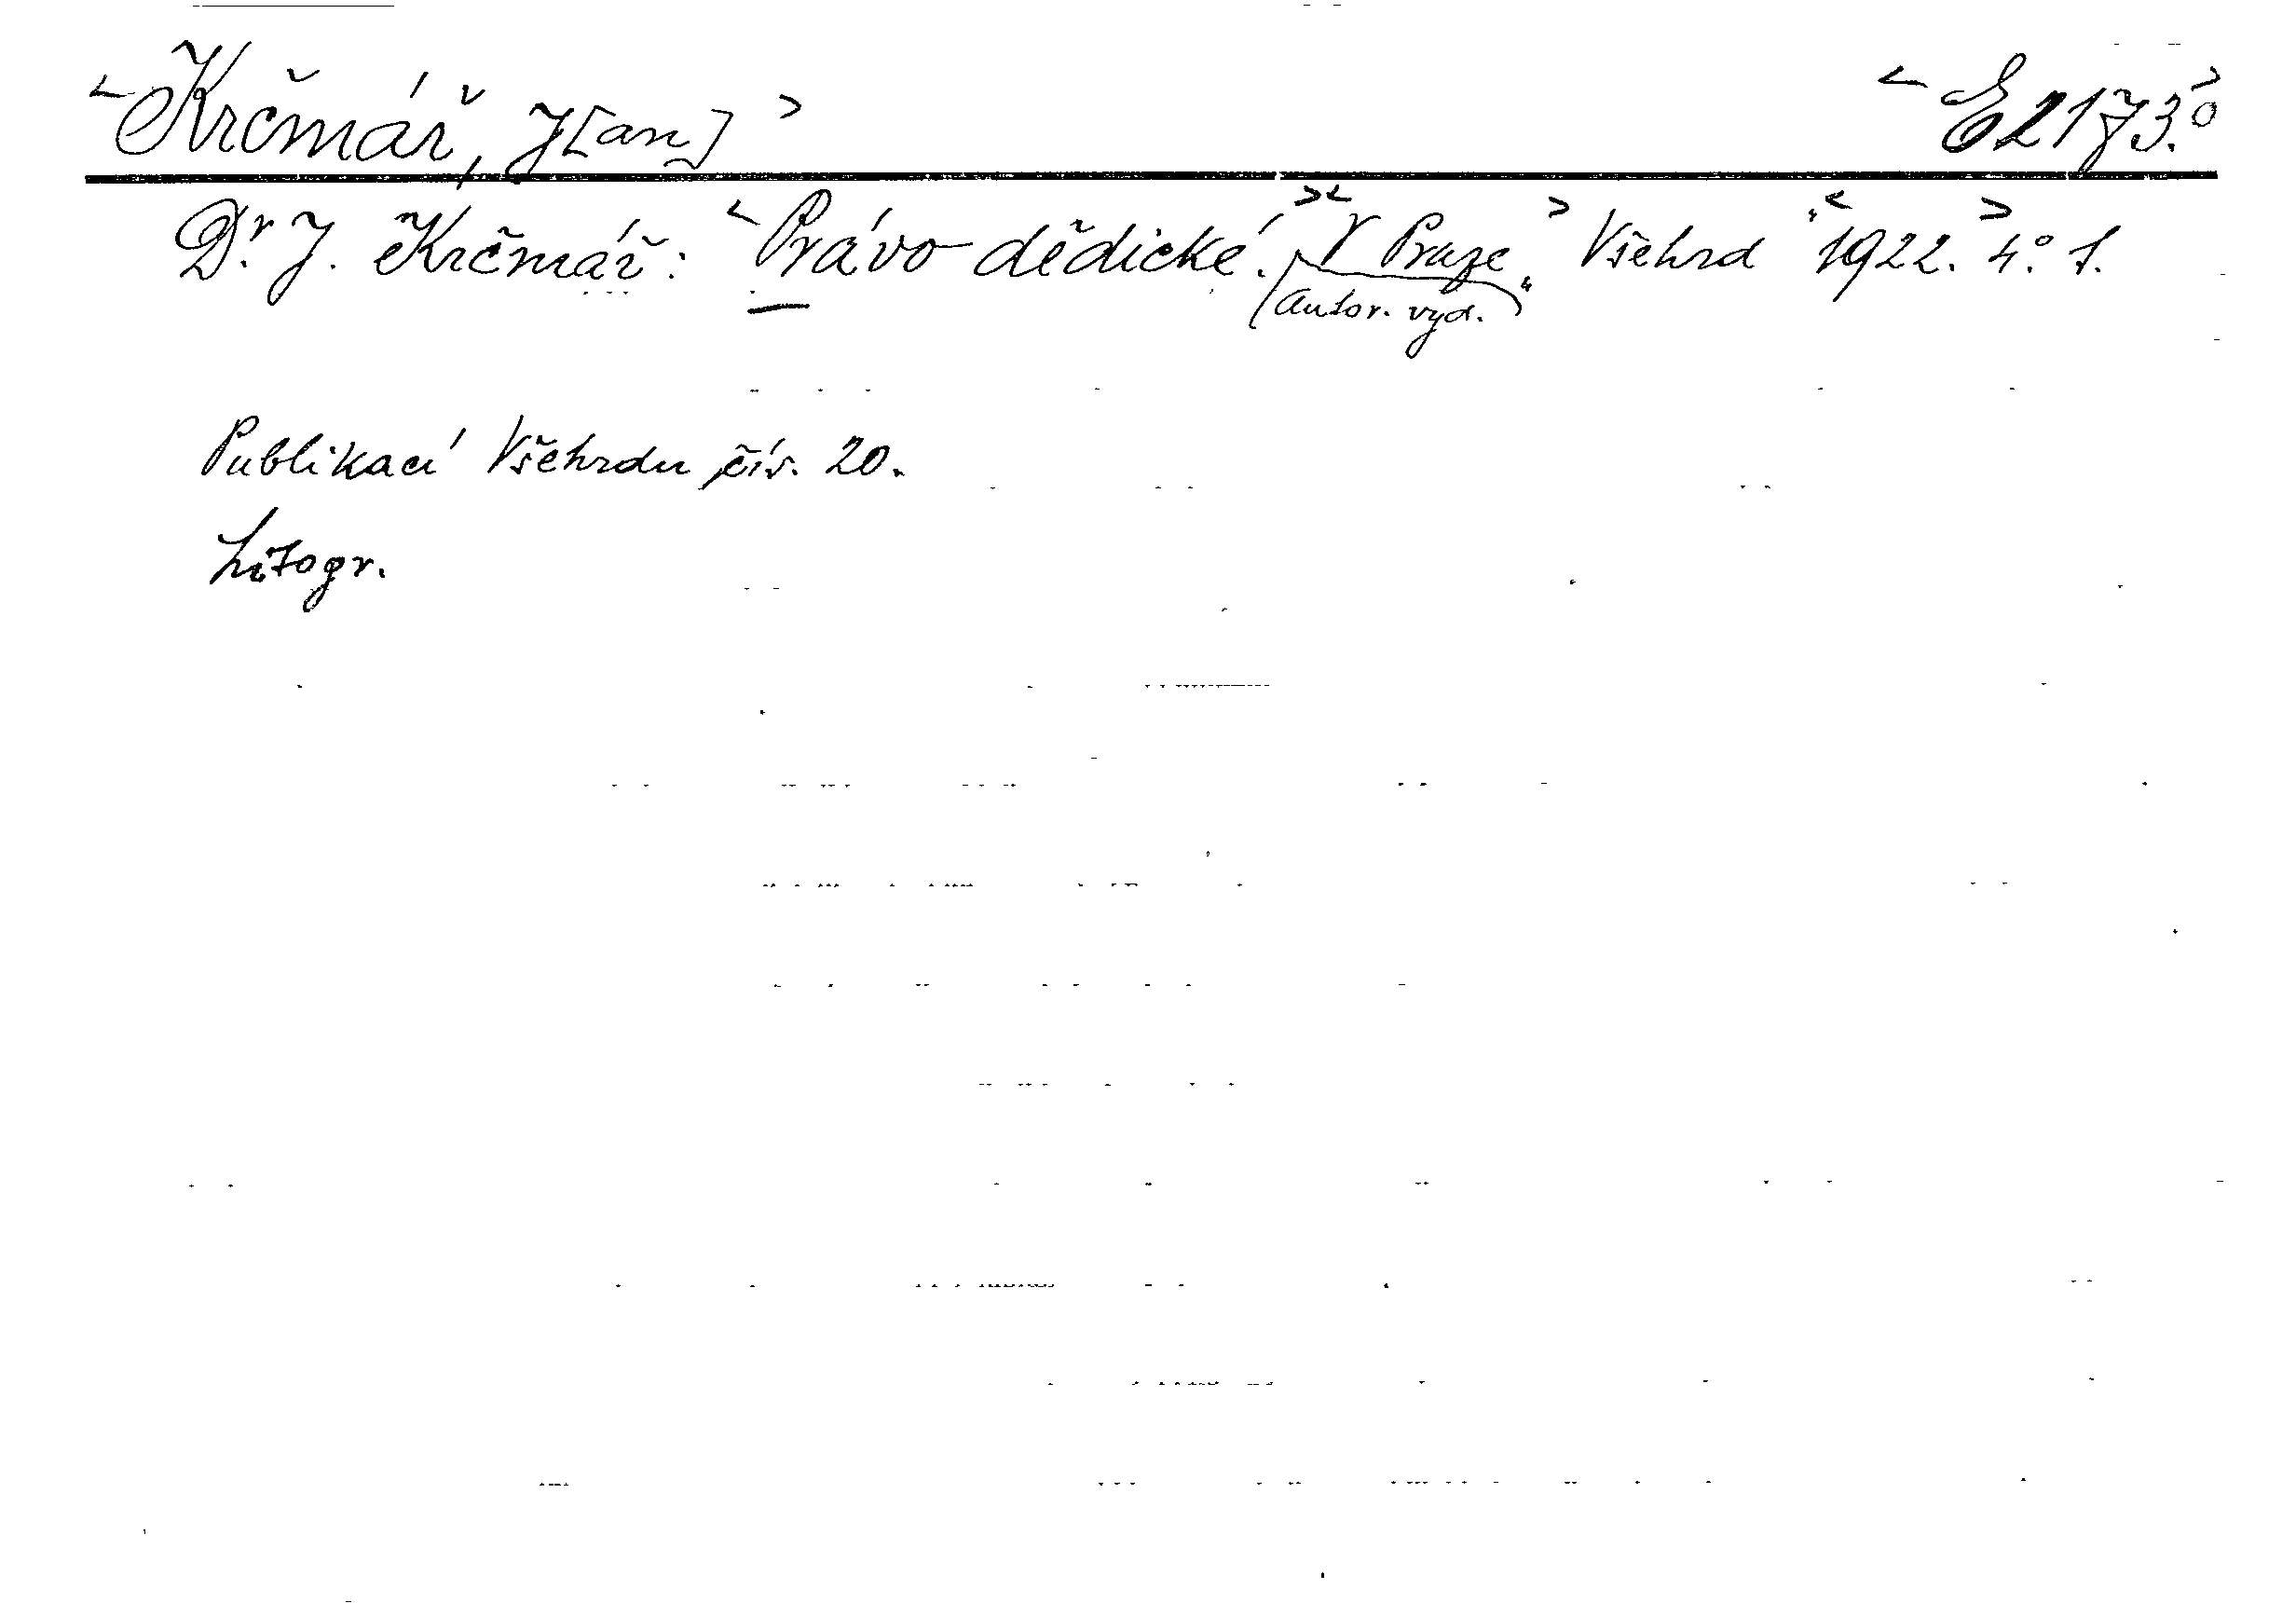 <Krčmář, J[an]> <E 2173.°>
Dr. J. Krčmář: <Právo dědické.><V Praze> „Všehrd“ <1922.> 4.° 1.
(Autor. vyd.)
Publikací Všehrdu čís. 20.
Litogr.